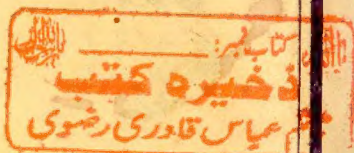 کتاب نمبر:
ذخیرہ کتب
میثم عباس قادری رضوی